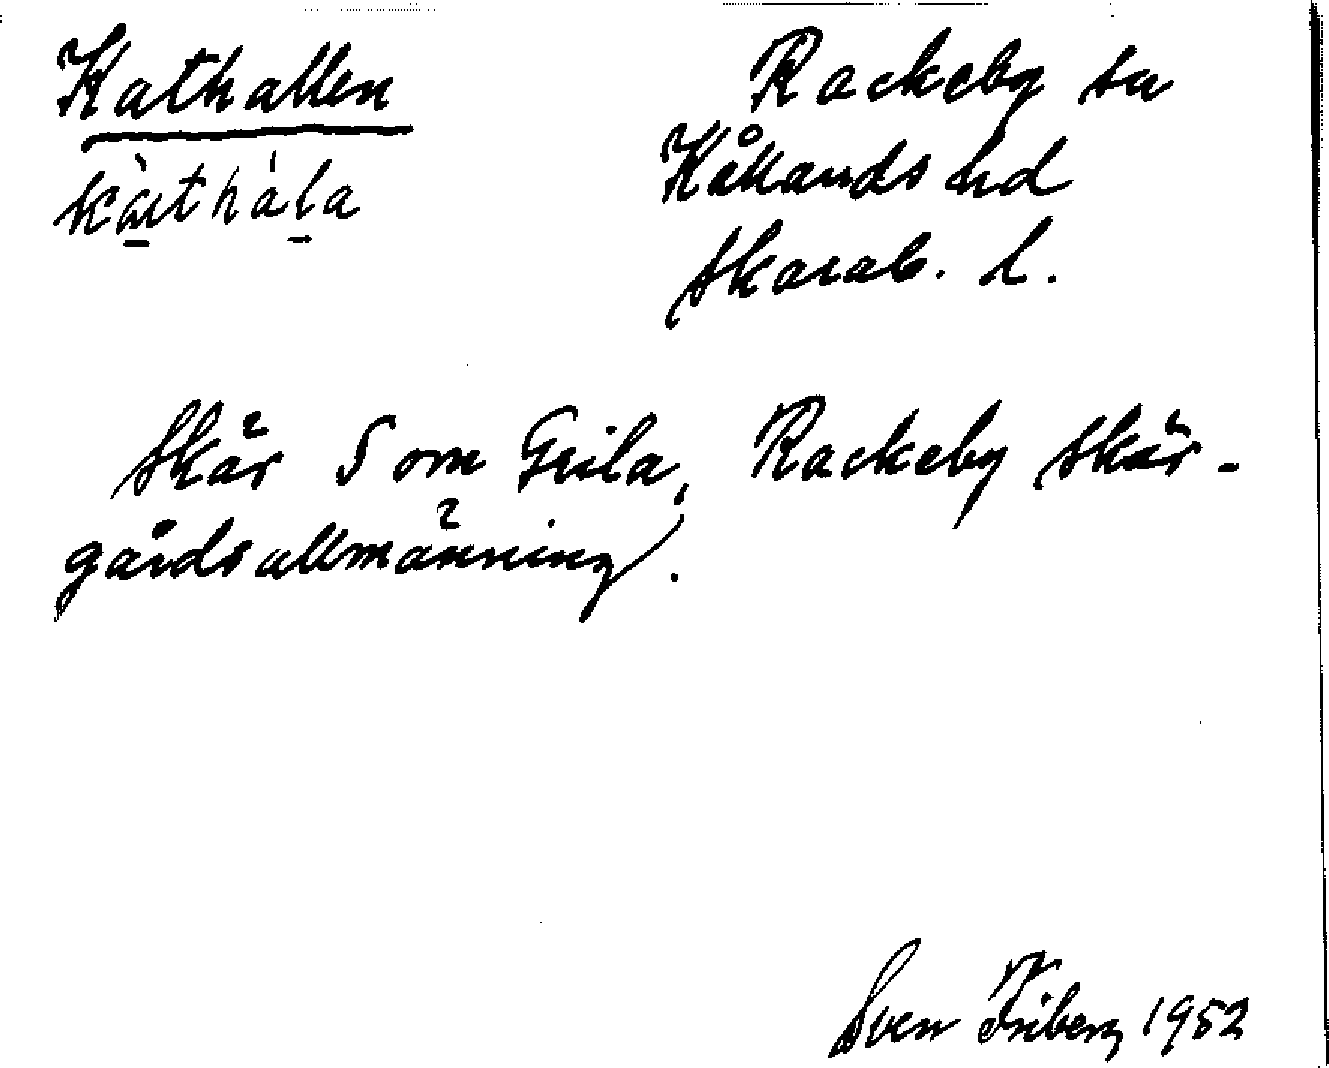 Kathallen
Rackeby sn
kàthála
Kållands hd
Skarab. l.
Skär S om Grila, Rackeby skär-
gårdsallmänning.
Sven Friberg 1952